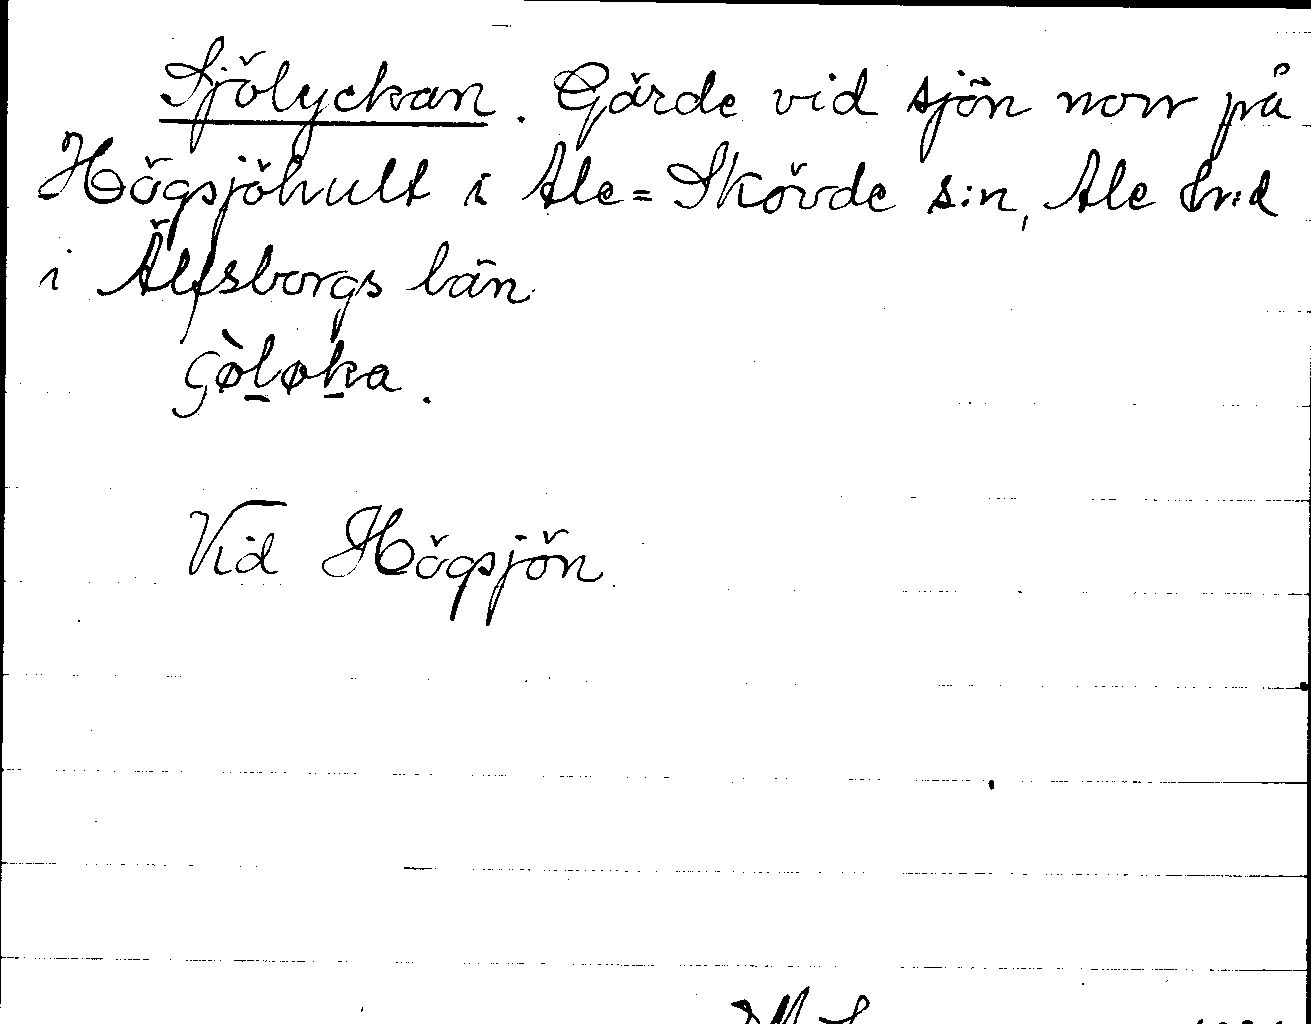 Sjölyckan. Gärde vid sjön norr på
Högsjöhult i Ale=Skövde s:n, Ale hr:d
i Älfsborgs län
Vid Högsjön.